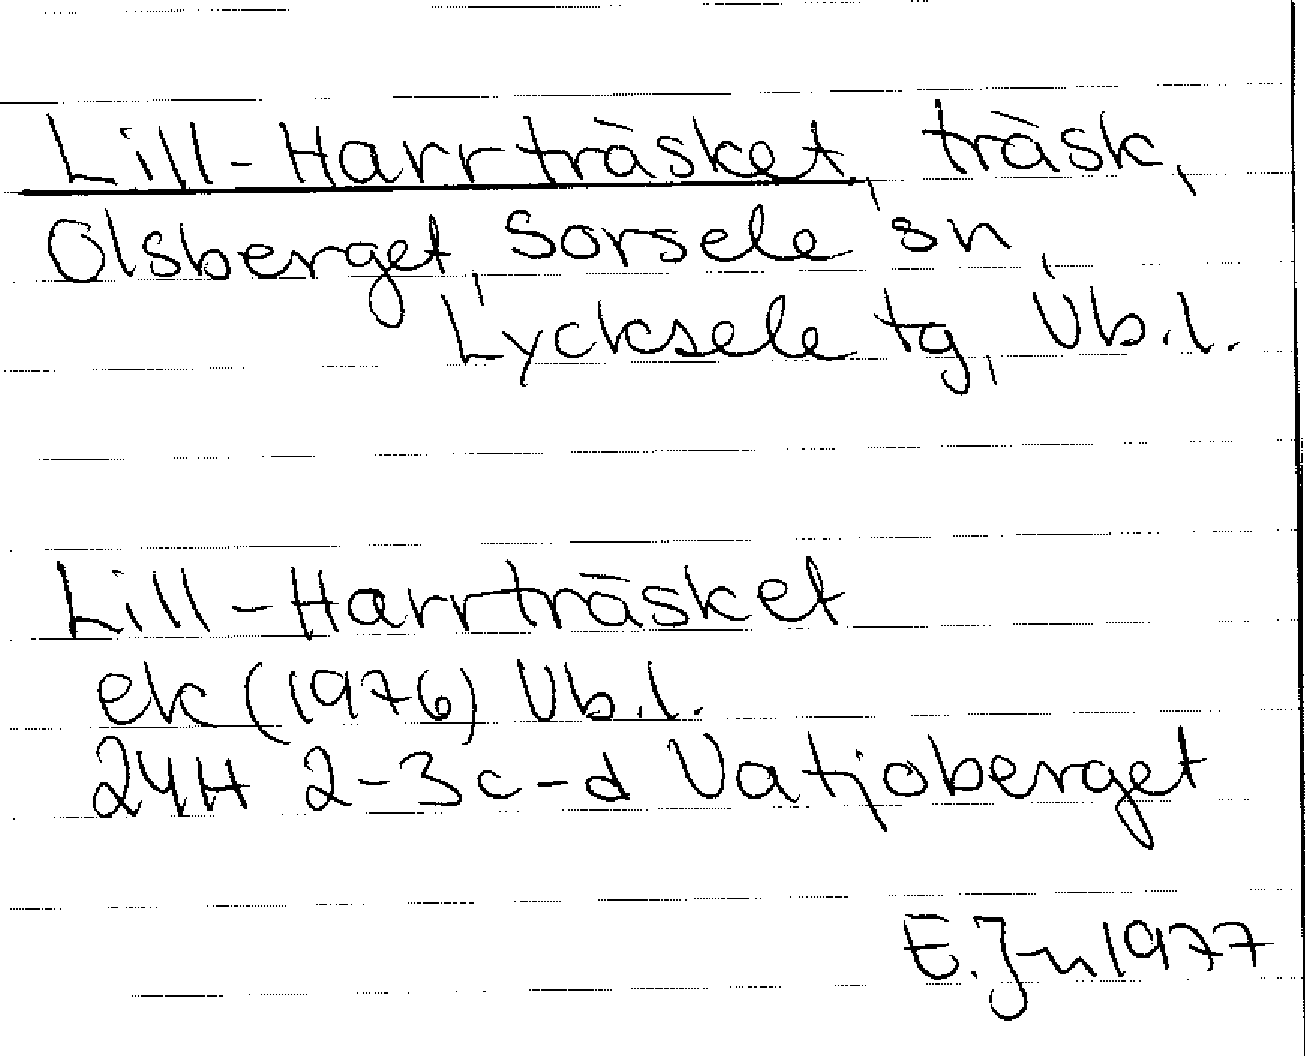 Lill-Harrträsket, träsk,
Olsberget, Sorsele sn,
Lycksele tg, Vb.l.
Lill-Harrträsket
ek (1976) Vb.l.
24H 2-3c-d Vatjoberget
E. Jn 1977